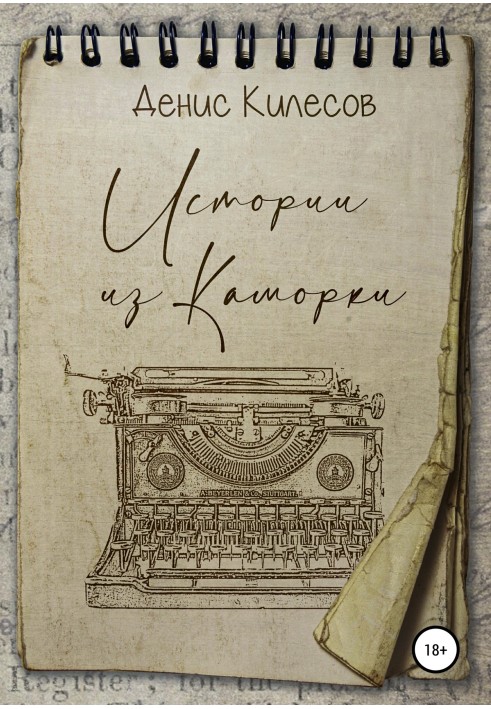 Денис Килесов
Истории
из Каморки
A. BEYERLEN & CO., STUTTGART.
18+
Register; for the present